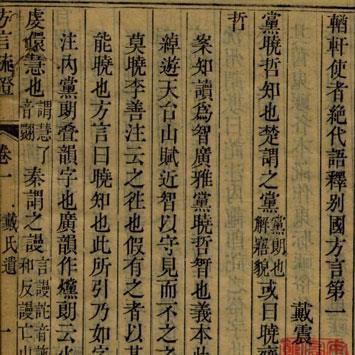 輶軒使者絕代語釋别國方言第一
戴震
黨曉哲知也楚謂之黨黨朗也解寤貌或曰曉齊
哲
案知讀爲智廣雅黨曉哲智也義本此
綽遊天台山賦近智以守見而不之之
莫曉李善注云之徃也假有之者以其
能曉也方言曰曉知也此所引乃如字
注内黨朗疊韻字也廣韻作爣朗云火
虔儇慧也謂慧了音翾秦謂之謾言謾詑音和反謾亡山
方言疏證 卷一 戴氏遺 一